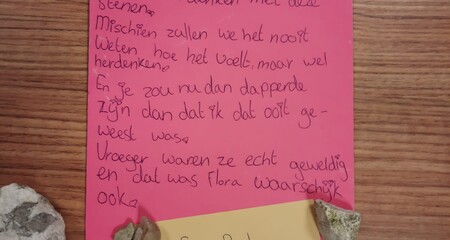 stenen. danken met deze
Mischien zullen we het nooit
weten hoe het voelt, maar wel
herdenken.
En je zou nu dan dapperde
zijn dan dat ik dat ooit ge-
weest was.
Vroeger waren ze echt geweldig
en dat was Flora waarschijk
ook.